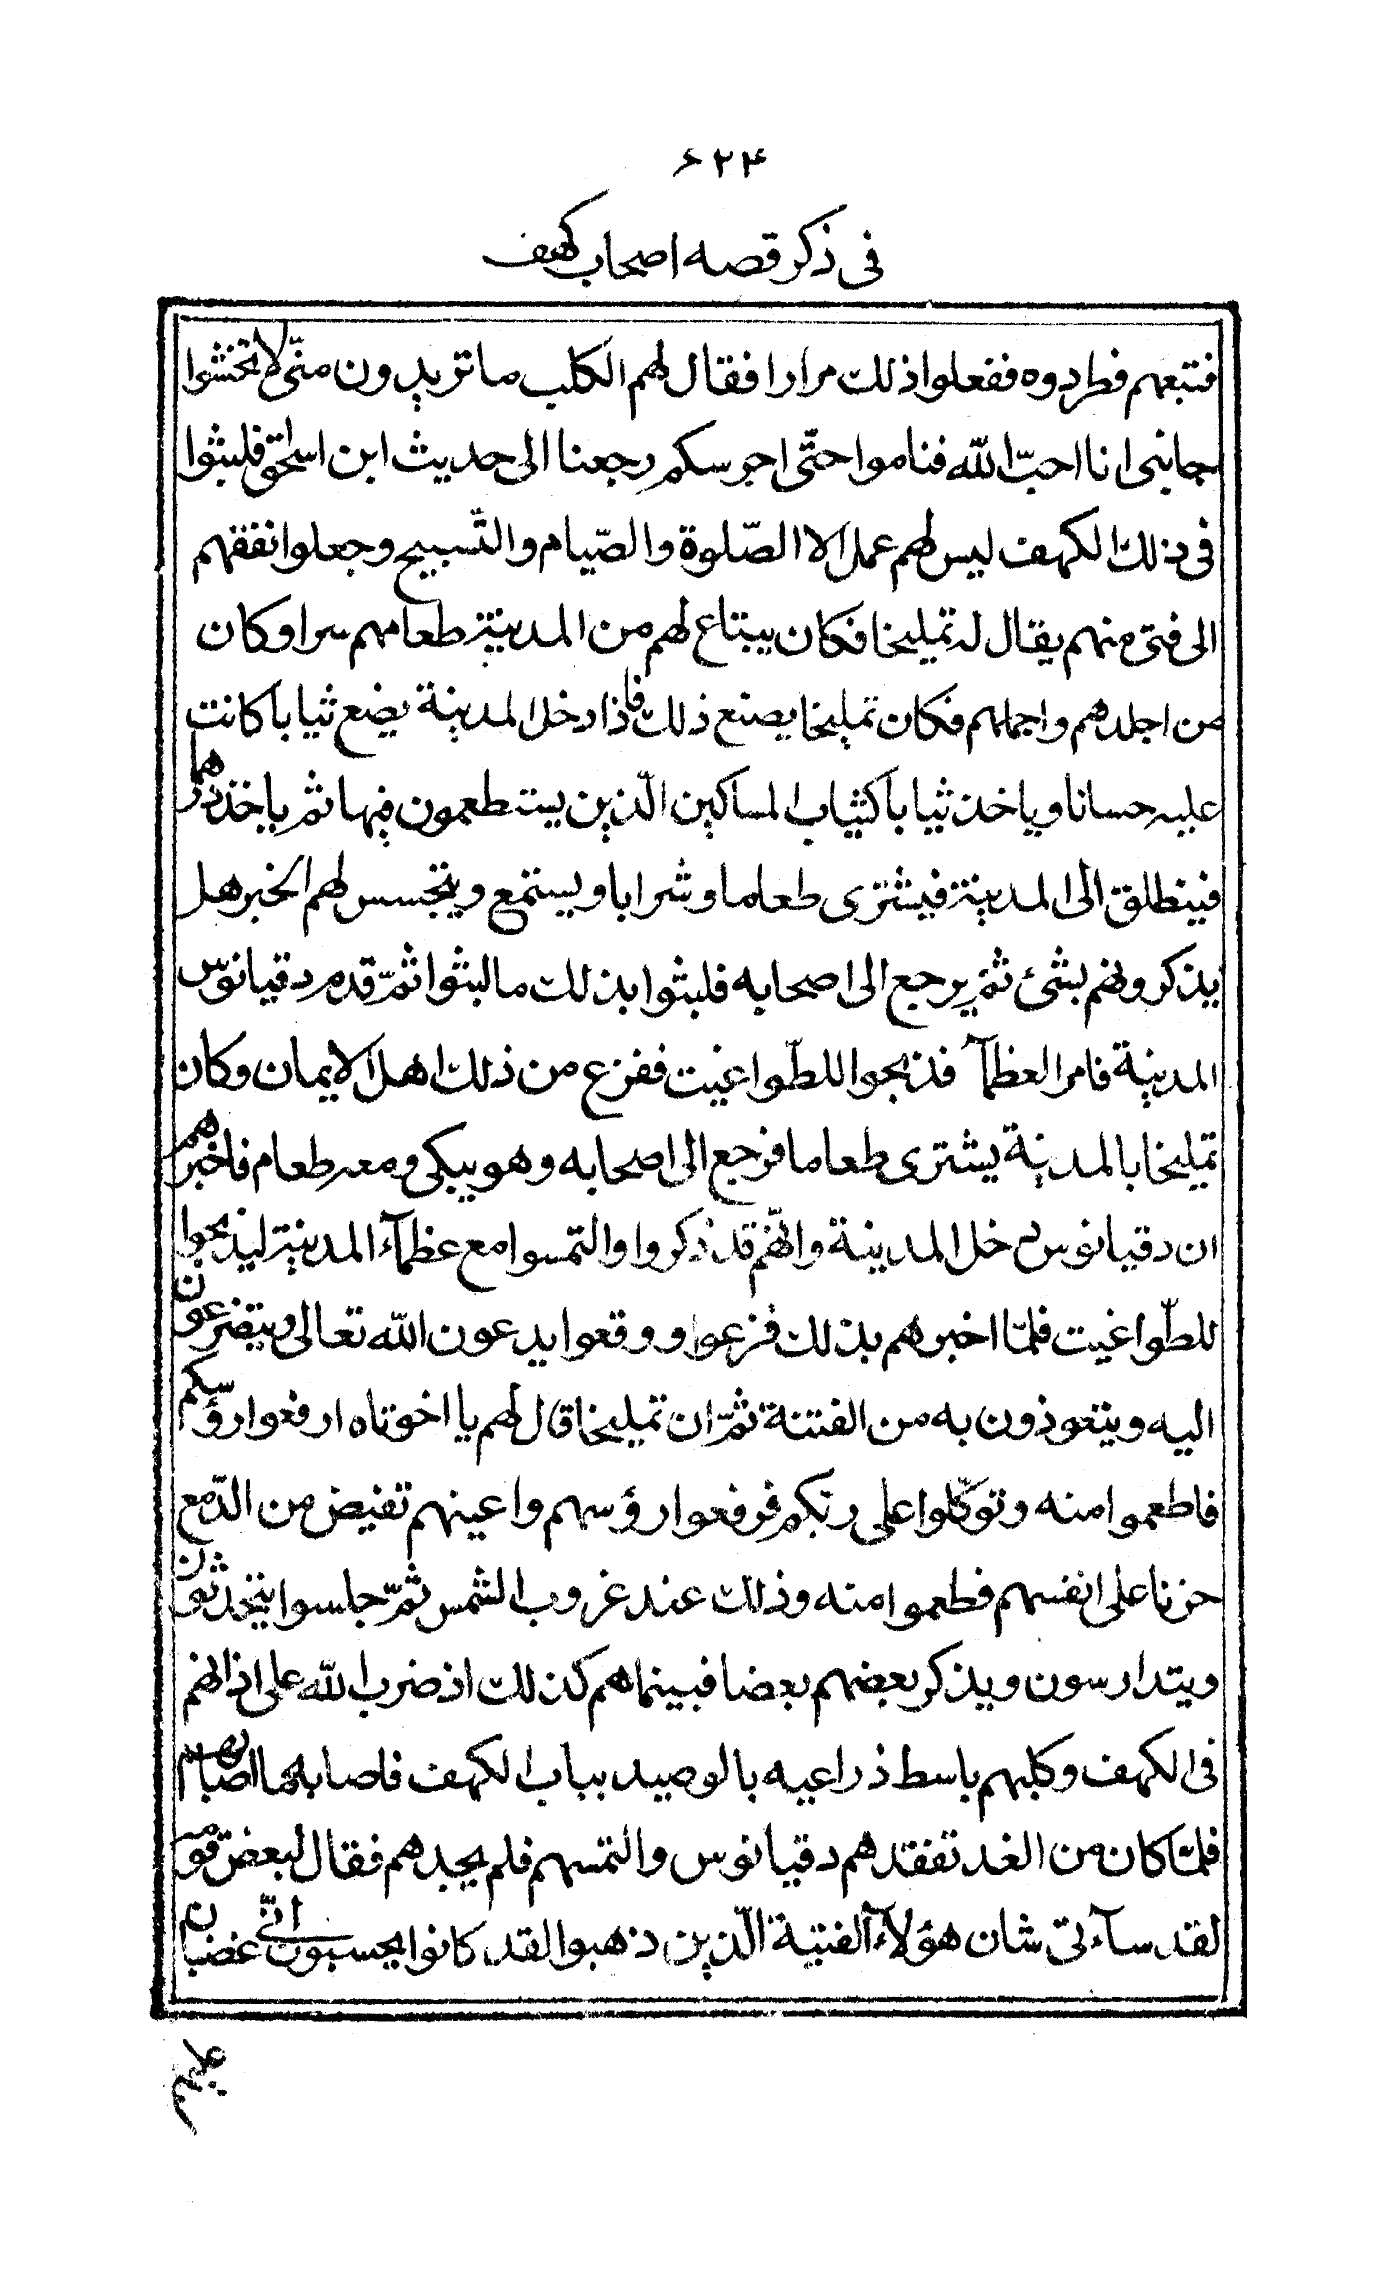 ۶۲۴
فی ذکر قصه اصحاب کهف
فتبعهم فطردوه ففعلوا ذلك مرارا فقال لهم الكلب ما تريدون منّى لا تخشوا
جانبى انا احبّ الله فناموا حتّى احرسكم رجعنا الى حديث ابن اسحق فلبثوا
فى ذلك الكهف ليس لهم عمل الا الصّلوة والصّيام والتّسبيح وجعلوا نفقهم
الى فتى منهم يقال له تمليخا فكان يبتاع لهم من المدينة طعامهم سرا وكان
من اجلدهم واجملهم فكان تمليخا يصنع ذلك فاذا دخل المدينة يضع ثيابا كانت
عليه حسانا وياخذ ثيابا كثياب المساكين الّذين يستطعمون فيها ثم ياخذ درهما
فينطلق الى المدينة فيشترى طعاما وشرابا ويستمع ويتجسس لهم الخبر هل
يذكرونهم بشئ ثم يرجع الى اصحابه فلبثوا بذلك ما لبثوا ثمّ قدم دقيانوس
المدينة فامر العظمآ فذبحوا للطّواغيت ففزع من ذلك اهل الايمان وكان
تمليخا بالمدينة يشترى طعاما فرجع الى اصحابه وهو يبكى ومعه طعام فاخبرهم
ان دقيانوس دخل المدينة وانّهم قد ذكروا والتمسوا مع عظمآء المدينة ليذبحوا
للطّواغيت فلمّا اخبرهم بذلك فزعوا ووقعوا يدعون الله تعالى ويتضرعون
اليه ويتعوذون به من الفتنة ثمّ ان تمليخا قال لهم يا اخوتاه ارفعوا رؤسكم
فاطعموا منه وتوكّلوا على ربّكم فرفعوا رؤسهم واعينهم تفيض من الدّمع
حزنا على انفسهم فطعموا منه وذلك عند غروب الشمس ثمّ جلسوا يتحدثون
ويتدارسون ويذكر بعضهم بعضا فبينما هم كذلك اذ ضرب الله على اذانهم
فى الكهف وكلبهم باسط ذراعيه بالوصيد بباب الكهف فاصابه ما اصابهم
فلمّا كان من الغد تفقدهم دقيانوس والتمسهم فلم يجدهم فقال لبعض قومه
لقد سآءنى شان هؤلآء الفتية الّذين ذهبوا لقد كانوا يحسبون انّى غضبان